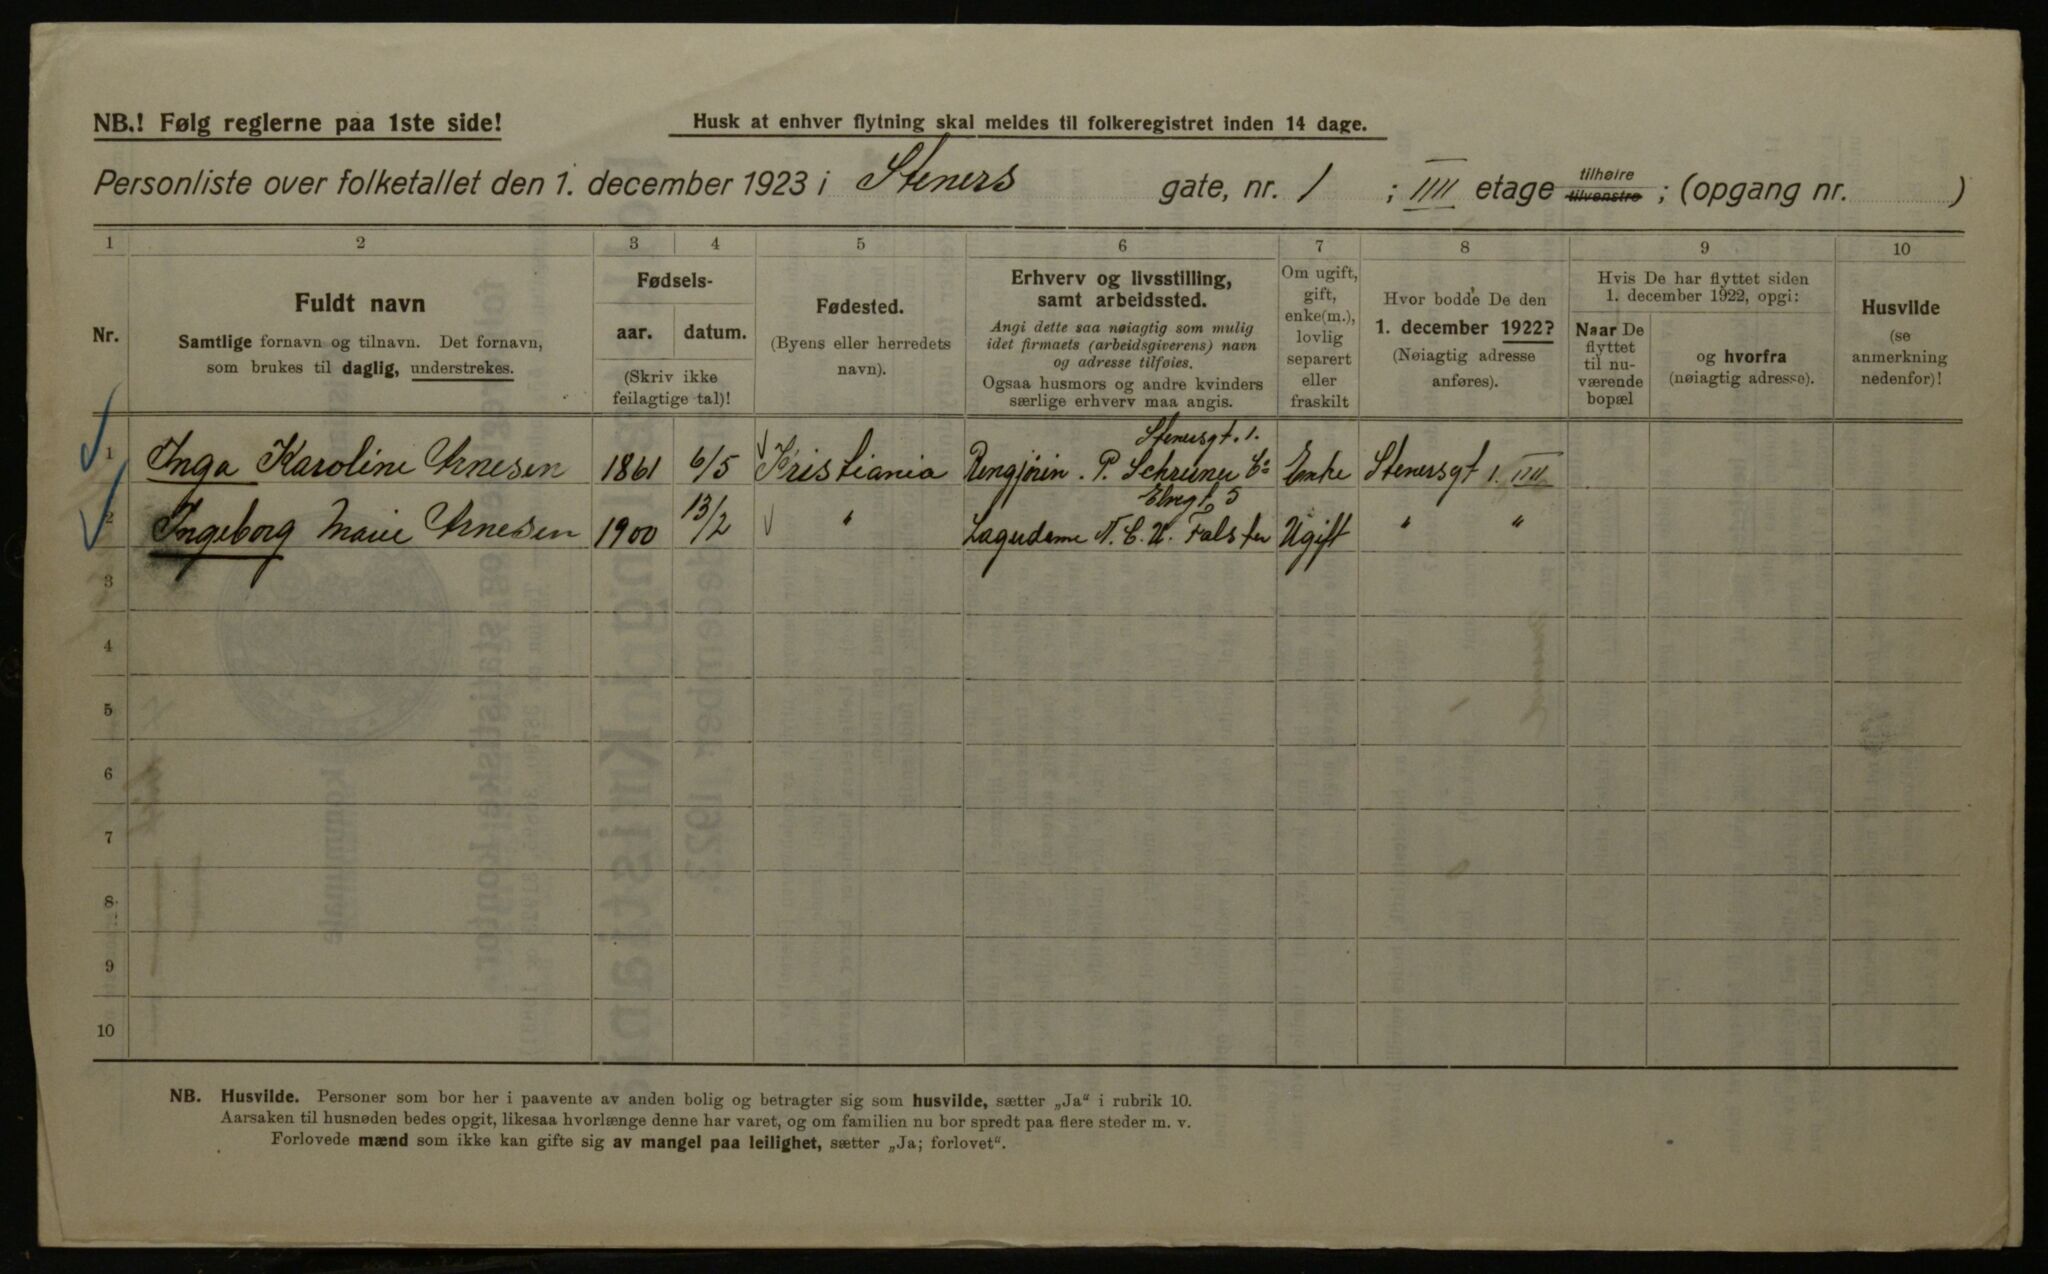 NB.! Følg reglerne paa 1ste side!
Husk at enhver flytning skal meldes til folkeregistret inden 14 dage.
Personliste over folketallet den 1. december 1923 i Steners gate, nr. 1 ; IIII etage tilhøire tilvenstre ; (opgang nr. )
1 2 3 4 5 6 7 8 9 10
Nr.
Fuldt navn
Samtlige fornavn og tilnavn. Det fornavn,
som brukes til daglig, understrekes.
Fødsels-
aar. datum.
(Skriv ikke
feilagtige tal)!
Fødested.
(Byens eller herredets
navn).
Erhverv og livsstilling,
samt arbeidssted.
Angi dette saa nøiagtig som mulig
idet firmaets (arbeidsgiverens) navn
og adresse tilføies.
Ogsaa husmors og andre kvinders
særlige erhverv maa angis.
Om ugift,
gift,
enke(m.),
lovlig
separert
eller
fraskilt
Hvor bodde De den
1. december 1922?
(Nøiagtig adresse
anføres).
Hvis De har flyttet siden
1. december 1922, opgi:
Naar De
flyttet
til nu-
værende
bopæl
og hvorfra
(nøiagtig adresse).
Husvilde
(se
anmerkning
nedenfor)!
Stenersgt. 1.
1 Inga Karoline Arnesen 1861 6/5 Kristiania Rengjørin. P. Schreiner Co Enke Stenersgt 1. IIII
Elvegt. 5
2 Ingeborg Marie Arnesen 1900 13/2 " Lagerdame N. C. U. Falster Ugift " "
3
4
5
6
7
8
9
10
NB. Husvilde. Personer som bor her i paavente av anden bolig og betragter sig som husvilde, sætter „Ja“ i rubrik 10.
Aarsaken til husnøden bedes opgit, likesaa hvorlænge denne har varet, og om familien nu bor spredt paa flere steder m. v.
Forlovede mænd som ikke kan gifte sig av mangel paa leilighet, sætter „Ja; forlovet“.